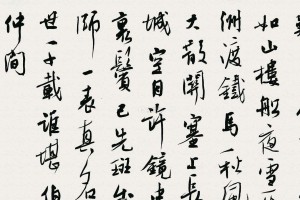 如山樓船夜雪
洲渡鐵馬秋風
大散關塞上長
城空自許鏡中
衰鬢已先斑出
師一表真名
世千載誰堪伯
仲間